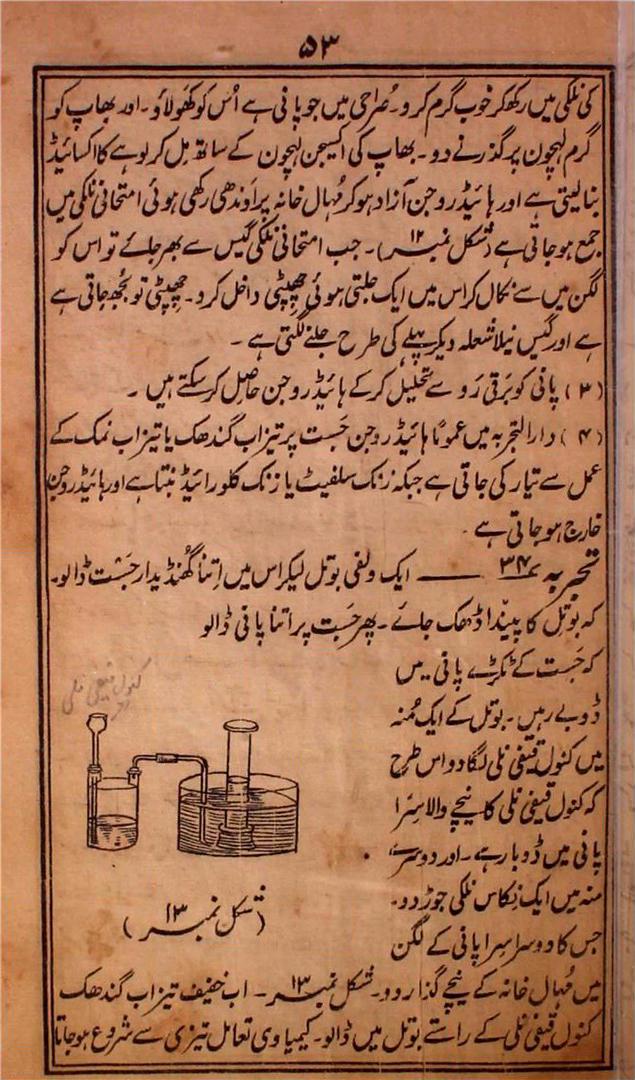 ۵۳
کی نلکی میں رکھ کر خوب گرم کرو۔ صُراحی میں جو پانی ہے اُس کو کھَولاؤ۔ اور بھاپ کو
گرم لہچون پر گذرنے دو۔ بھاپ کی اکسیجن لہچون کے ساتھ مل کر لوہے کا اکسائیڈ
بنا لیتی ہے اور ہائیڈروجن آزاد ہو کر مُہال خانہ پر اَوندھی رکھی ہوئی امتحانی نلکی میں
جمع ہو جاتی ہے (شکل نمبر ۱۲)۔ جب امتحانی نلکی گیس سے بھر جائے تو اس کو
لگن میں سے نکال کر اس میں ایک جلتی ہوئی چھپٹی داخل کرو۔ چھپٹی تو بُجھ جاتی ہے
ہے اور گیس نیلا شعلہ دیکر پہلے کی طرح جلنے لگتی ہے۔
(۳) پانی کو برَقی رَو سے تحلیل کر کے ہائیڈروجن حاصل کر سکتے ہیں۔
(۴) دار التجربہ میں عموماً ہائیڈروجن جَست پر تیزاب گندھک یا تیزاب نمک کے
عمل سے تیار کی جاتی ہے جبکہ زنک سلفیٹ یا زنک کلورائیڈ بنتا ہے اور ہائیڈروجن
خارج ہو جاتی ہے۔
تجربہ ۳۴ــــــ ایک ولفی بوتل لیکر اس میں اِتنا گھُنڈیدار جَست ڈالو۔
کہ بوتل کا پیندا ڈھک جائے۔ پھر جَست پر اتنا پانی ڈالو
کہ جَست کے ٹکڑے پانی میں
ڈوبے رہیں۔ بوتل کے ایک مُنہ
میں کنول قیفی نلی لگا دو اس طرح
کہ کنول قیفی نلی کا نیچے والا سِرا
پانی میں ڈوبا رہے۔ اور دوسرے
منہ میں ایک نِکاس نلکی جوڑ دو۔
جس کا دوسرا سِرا پانی کے لگن
میں مُہال خانہ کے نیچے گذار دو۔ شکل نمبر ۱۳۔ اب خفیف تیزاب گندھک
کنول قیفی نلی کے راستے بوتل میں ڈالو۔ کیمیاوی تعامل تیزی سے شروع ہو جاتا
کنول قیفی نلی
(شکل نمبر ۱۳)